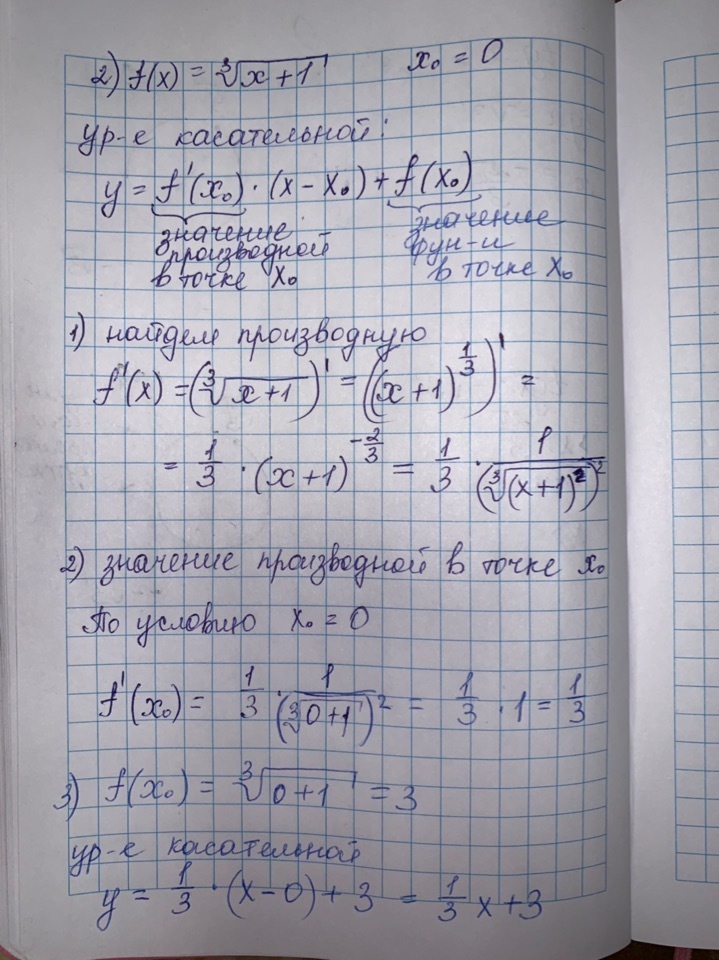 2) f(x) = ∛(x+1)    x₀ = 0
ур-е касательной:
y = f'(x₀) · (x - x₀) + f(x₀)
значение производной в точке x₀
значение фун-и в точке x₀
1) найдем производную
f'(x) = (∛(x+1))' = ((x+1)^(1/3))' =
= 1/3 · (x+1)^(-2/3) = 1/3 · 1/(∛((x+1)²))²
2) значение производной в точке x₀
По условию x₀ = 0
f'(x₀) = 1/3 · 1/(∛(0+1))² = 1/3 · 1 = 1/3
3) f(x₀) = ∛(0+1) = 3
ур-е касательной
y = 1/3 · (x-0) + 3 = 1/3 x + 3